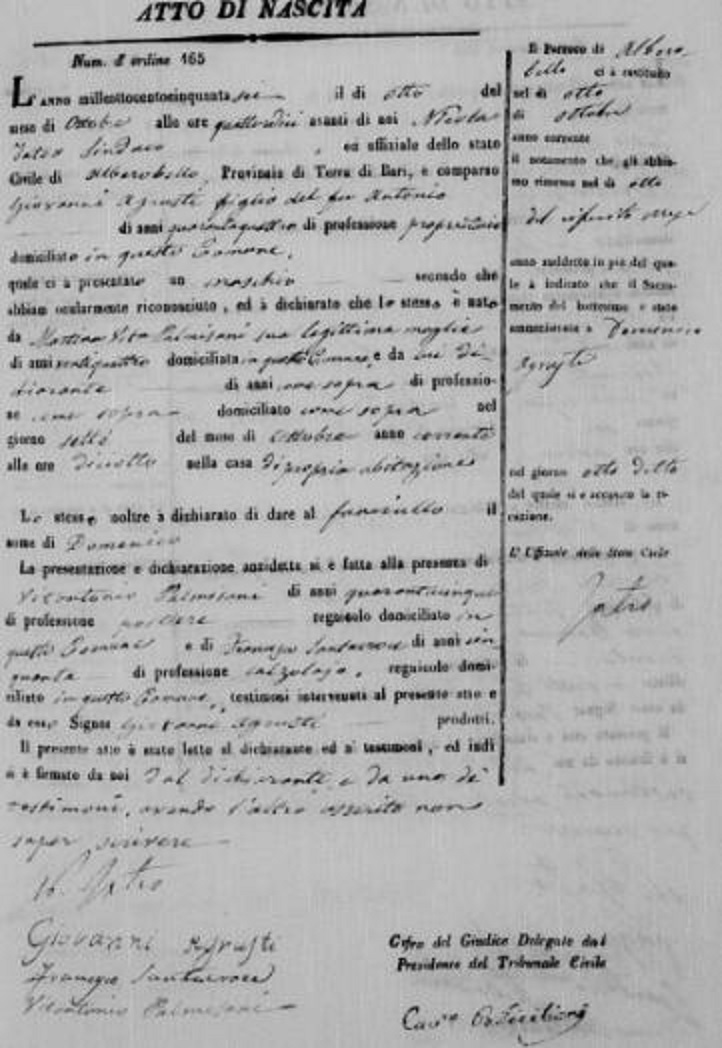 ATTO DI NASCITA
Num. d'ordine 165
L'ANNO millottocentocinquantasei il dì otto del
mese di Ottobre alle ore quattordici avanti di noi Nicola
Jatro Sindaco ed uffiziale dello stato
Civile di Alberobello, Provincia di Terra di Bari, è comparso
Giovanni Agrusti figlio del fu Antonio
di anni quarantaquattro di professione proprietario
domiciliato in questo Comune,
quale ci à presentato un maschio secondo che
abbiam ocularmente riconosciuto, ed à dichiarato che lo stesso è nato
da Martina Vita Palmisani sua legittima moglie
di anni ventiquattro domiciliata in questo Comune, e da lui di-
chiarante di anni come sopra di professio-
ne come sopra domiciliato come sopra nel
giorno sette del mese di Ottobre anno corrente
alle ore diciotto nella casa di propria abitazione
Lo stesso noltre à dichiarato di dare al fanciullo il
nome di Domenico
La presentazione e dichiarazione anzidetta si è fatta alla presenza di
Vitantonio Palmesani di anni quarantacinque
di professione regnicolo domiciliato in
questo Comune e di Francesco Santacroce di anni cin-
quanta di professione calzolajo, regnicolo domi-
ciliato in questo Comune, testimoni intervenuti al presente atto e
da esso Signor Giovanni Agrusti prodotti.
Il presente atto è stato letto al dichiarante ed a' testimoni, ed indi
si è firmato da noi dal dichiarante, e da uno de'
testimoni, avendo l'altro asserito non
saper scrivere
N. Jatro
Giovanni Agrusti
Francesco Santacroce
Vitantonio Palmesani
Il Parroco di Albero-
bello ci à restituito
nel dì otto
di ottobre
anno corrente
il notamento che gli abbia-
mo rimesso nel dì otto
del riferito mese
anno suddetto in piè del qua-
le à indicato che il Sacra-
mento del battesimo è stato
amministrato a Domenico
Agrusti
nel giorno otto detto
del quale si è accusato la ri-
cezione.
L'Uffiziale dello Stato Civile
Jatro
Cifra del Giudice Delegato dal
Presidente del Tribunale Civile